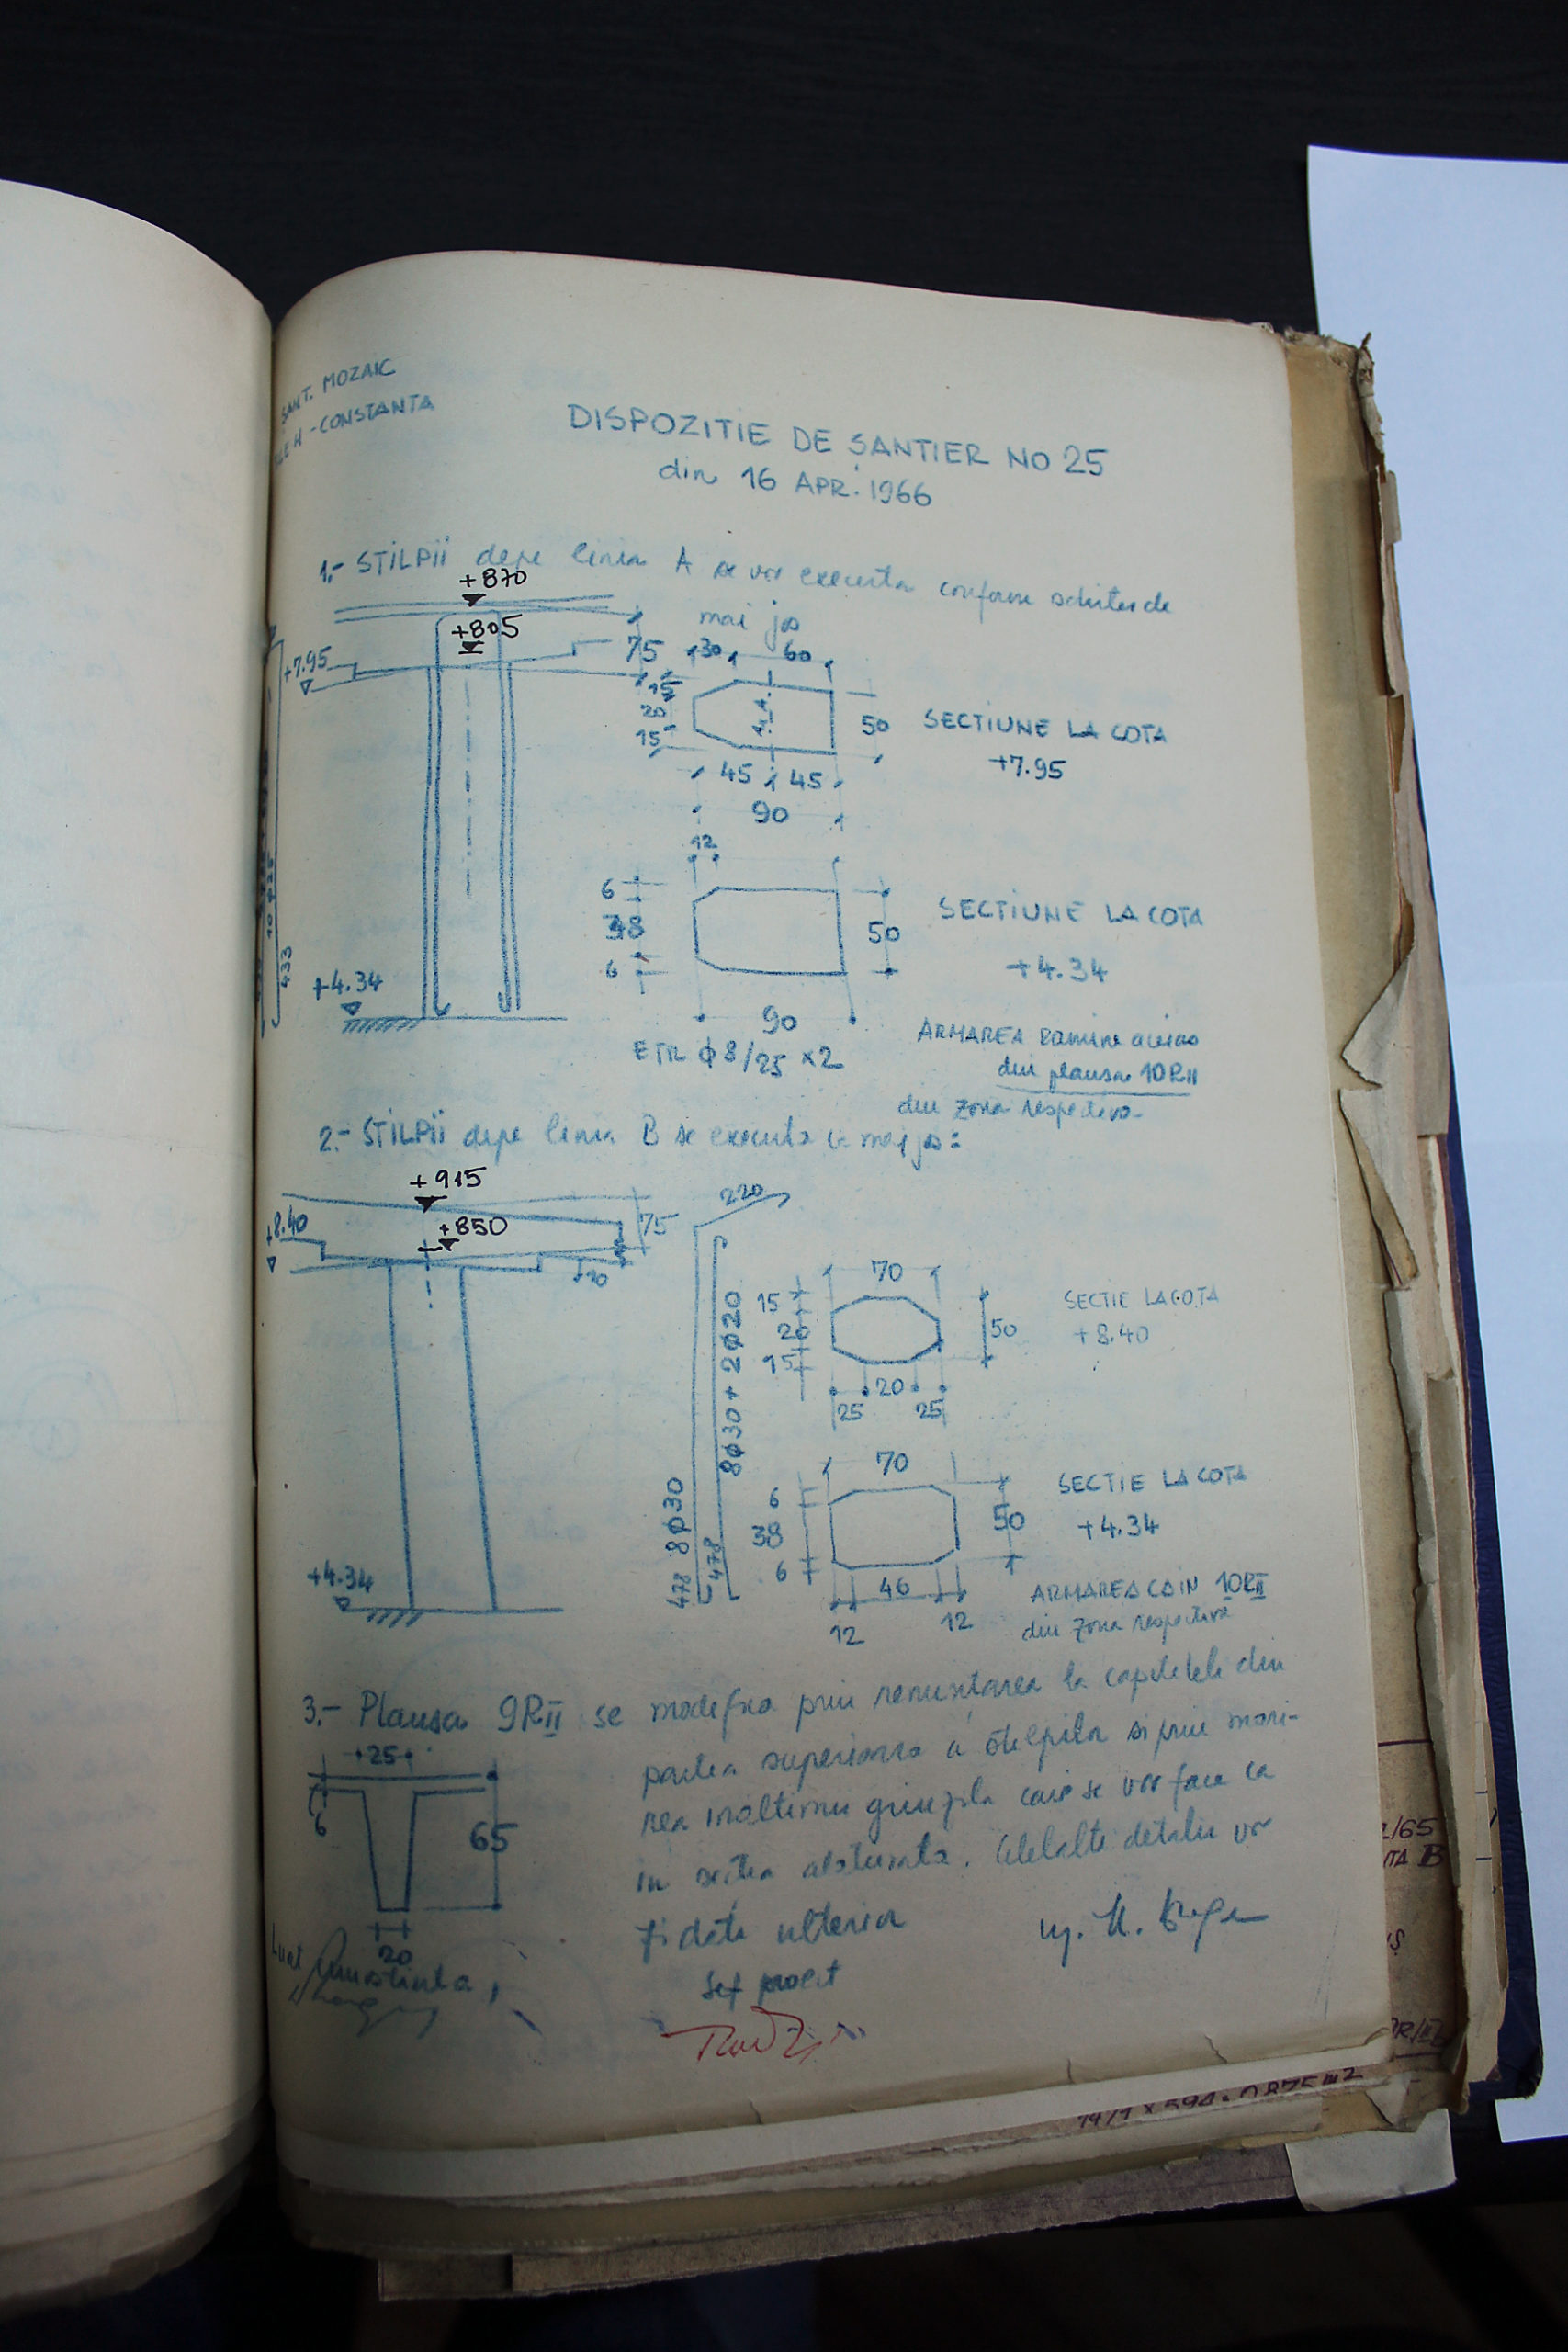 SANT. MOZAIC
H - CONSTANTA
DISPOZITIE DE ȘANTIER NO 25
din 16 APR. 1966
1.- STILPII depe linia A se vor executa conform schitei de
mai jos
+870
+805
+7.95
75
30 60
15
20
15
50
45 45
90
SECTIUNE LA COTA
+7.95
12
6
38
6
50
90
SECTIUNE LA COTA
+4.34
+4.34
433
ETR ϕ8/25 x2
ARMAREA ramine aceias
din plansa 10RII
din zona respectiva
2.- STILPII depe linia B se executa ca mai jos:
+915
+850
+8.40
75
20
220
70
15
20
15
50
20
25 25
SECTIE LA COTA
+8.40
8ϕ30 + 2ϕ20
478 8ϕ30
478
70
6
38
6
50
46
12 12
SECTIE LA COTA
+4.34
+4.34
ARMAREA CA IN 10RII
din zona respectivă
3.- Plansa 9RII se modifica prin renuntarea la capitelele din
partea superioara a stilpilor si prin mari-
rea inaltimii grinzilor care se vor face ca
in sectia alaturata. Celelalte detalii vor
fi date ulterior
25
6
65
20
Luat cunostinta,
Sef proect
ing.
1/65
B
14/1 x 594 = 0.875 m2